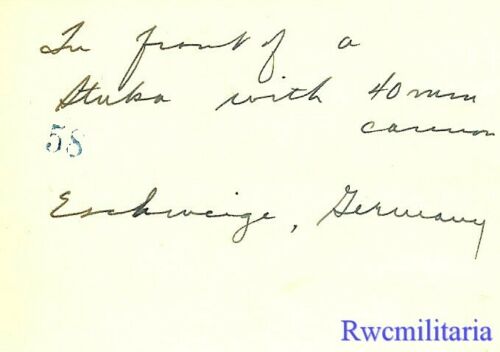 In front of a
Stuka with 40 mm
cannon
58
Eschweige, Germany
Rwcmilitaria